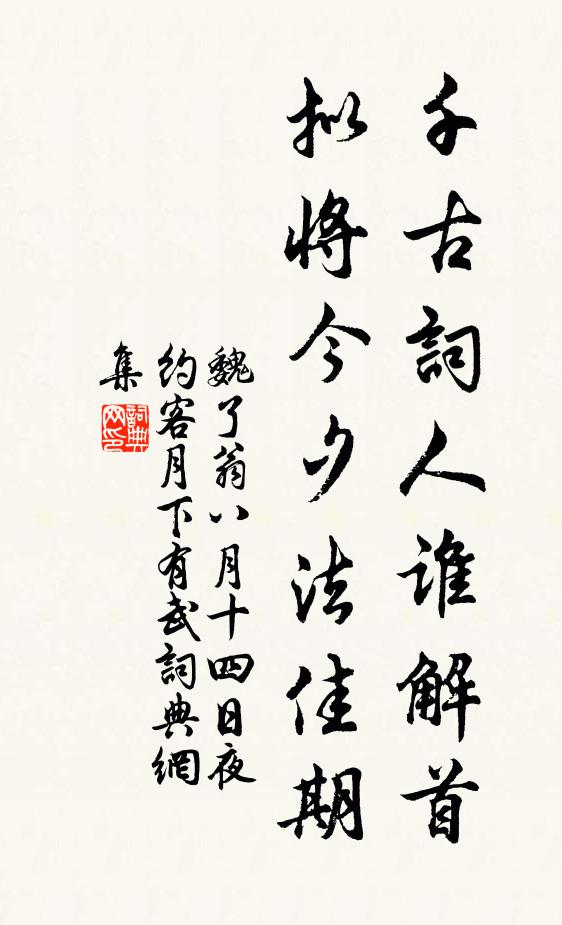 千古詞人誰解首
拟將今夕法佳期
魏了翁八月十四日夜
約客月下有武詞典網
集
詞典
网印